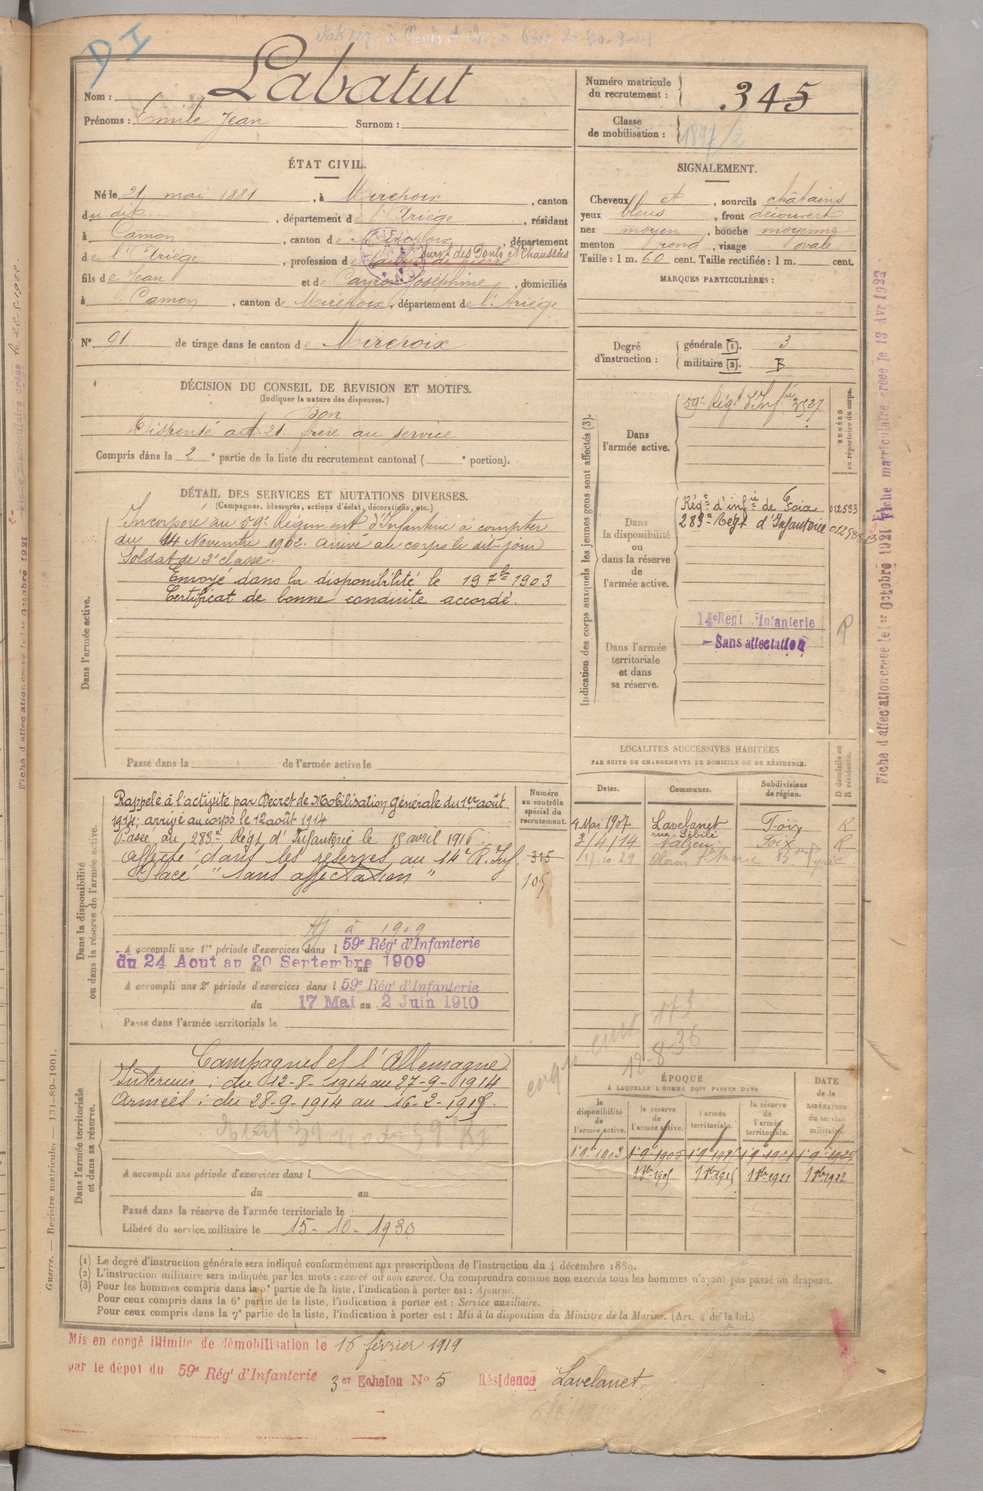 DI
Nom : Labatut
Prénoms : Emile Jean Surnom :
Numéro matricule du recrutement : 345
Classe de mobilisation :
ÉTAT CIVIL.
Né le 21 mai 1881, à Mirepoix, canton
du dit, département de l'Ariège, résidant
à Camon, canton de Mirepoix, département
de l'Ariège, profession de Surv^t des Ponts et Chaussées
fils de Jean et de Cayrol Joséphine, domiciliés
à Camon, canton de Mirepoix, département de l'Ariège
N° 91 de tirage dans le canton de Mirepoix
SIGNALEMENT.
Cheveux et, sourcils châtains
yeux bleus, front découvert
nez moyen, bouche moyenne
menton rond, visage ovale
Taille : 1 m. 60 cent. Taille rectifiée : 1 m. cent.
MARQUES PARTICULIÈRES :
Degré d'instruction : générale (1). 3
militaire (2).
DÉCISION DU CONSEIL DE REVISION ET MOTIFS.
(Indiquer la nature des dispenses.)
Bon
Dispensé art. 21. frère au service
Compris dans la 2^e partie de la liste du recrutement cantonal ( ^e portion).
DÉTAIL DES SERVICES ET MUTATIONS DIVERSES.
(Campagnes, blessures, actions d'éclat, décorations, etc.)
Dans l'armée active.
Incorporé au 59^e Régiment d'Infanterie à compter
du 14 Novembre 1902. arrivé au corps le dit jour
Soldat de 2^e classe.
Envoyé dans la disponibilité le 19 7^bre 1903
Certificat de bonne conduite accordé.
Passé dans la de l'armée active le
Indication des corps auxquels les jeunes gens sont affectés (3).
NUMÉRO au répertoire du corps.
Dans l'armée active.
59^e Rég^t d'Inf^ie 3527
Dans la disponibilité ou dans la réserve de l'armée active.
Rég^t d'inf^ie de Foix 012593
283^e Rég^t d'Infanterie
Dans l'armée territoriale et dans sa réserve.
14^e Regt d'Infanterie
- Sans affectation
Fiche d'affectation créée le 1^er Octobre 1921
Fiche matriculaire créée le 13 Avr 1923
Dans la disponibilité ou dans la réserve de l'armée active.
Rappelé à l'activité par Décret de Mobilisation générale du 1^er août
1914; arrivé au corps le 12 août 1914
Passé au 283^e Régt d'Infanterie le 15 avril 1916.
Affecté dans les réserves au 14^e R. Inf.
Placé "Sans affectation"
Numéro au contrôle spécial du recrutement.
315
105
A accompli une 1^re période d'exercices dans l 59^e Rég^t d'Infanterie
du 24 Aout au 20 Septembre 1909
A accompli une 2^e période d'exercices dans l 59^e Rég^t d'Infanterie
du 17 Mai au 2 Juin 1910
Passé dans l'armée territoriale le
LOCALITÉS SUCCESSIVES HABITÉES
PAR SUITE DE CHANGEMENTS DE DOMICILE OU DE RÉSIDENCE.
Dates. Communes. Subdivisions de région. D domicile ou R résidence.
4 Mai 1907 Lavelanet Foix R
2/4/14 Nalzen Foix R
Dans l'armée territoriale et dans sa réserve.
Campagnes c/ l'Allemagne
Intérieur : du 12-8-1914 au 27-9-1914
Armées : du 28-9-1914 au 16-2-1919.
A accompli une période d'exercices dans l
du au
Passé dans la réserve de l'armée territoriale le
Libéré du service militaire le 15-10-1930
12-8-36
ÉPOQUE
À LAQUELLE L'HOMME DOIT PASSER DANS
la disponibilité de l'armée active. la réserve de l'armée active. l'armée territoriale. la réserve de l'armée territoriale. DATE de la LIBÉRATION du service militaire.
1^er 9^bre 1903 1^er 9^bre 1905
1^er 8^bre 1905 1^er 8^bre 1915 1^er 8^bre 1921
(1) Le degré d'instruction générale sera indiqué conformément aux prescriptions de l'instruction du 4 décembre 1889.
(2) L'instruction militaire sera indiquée par les mots : exercé ou non exercé. On comprendra comme non exercés tous les hommes n'ayant pas passé au drapeau.
(3) Pour les hommes compris dans la 5^e partie de la liste, l'indication à porter est : Ajourné.
Pour ceux compris dans la 6^e partie de la liste, l'indication à porter est : Service auxiliaire.
Pour ceux compris dans la 7^e partie de la liste, l'indication à porter est : Mis à la disposition du Ministre de la Marine. (Art. 4 de la loi.)
Guerre. — Registre matricules. — 131-89-1901.
Mis en congé illimité de démobilisation le 16 février 1919
par le dépôt du 59^e Rég^t d'Infanterie 3^er Echelon N° 5 Résidence Lavelanet.